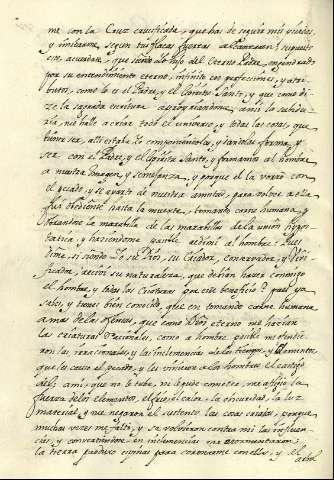 me con la Cruz crucificada, que has de seguir mis pisadas,
y imitarme, segun tus flacas fuerzas alcanzaren; supuesto
esto, acuerdate, que siendo Yo hijo del Eterno Padre, engendrado
por su entendimiento eterno, infinito en perfecciones, y atri-
butos, como lo es el Padre, y el Espiritu Santo, y que como di-
ze la sagrada escritura a mi la sabidu-
ria, me halle a criar todo el universo, y todas las cosas, que
tiene ser, alli estaba Yo componiendolas, y dandolas forma, y
ser con el Padre, y el Espiritu Santo, y formamos al hombre
a nuestra Imagen, y semejanza, y porque el la borro con
el pecado, y se aparto de nuestra amistad, para volverle a ella
fui obediente hasta la muerte, tomando carne humana, y
obrandose la marabilla de las marabillas de la union hypos-
tatica, y haciendome pasible redimi al hombre. Pues
dime, si siendo Yo su Dios, su Criador, conservador, y Vivi-
ficador, autor de su naturaleza, que debian hazer conmigo
el hombre, y todas las Criaturas por este beneficio? pues ya
sabes, y tienes bien conocido, que en tomando carne humana
a mas de las ofensas, que como Dios eterno me hacian
las criaturas racionales, como a hombre pasible me ofendie-
ron las irracionales, y las inclemencias de los tiempos, y elementos,
que les causo el pecado, y les vinieron a los hombres el castigo
del; a mi, que no le tube, ni le pude cometer, me afligio la
fuerza de los elementos, el frio, el calor, la obscuridad, la luz
material, y me negaron el sustento las cosas criadas, porque
muchas vezes me falto, y se volvieron contra mi las influen-
cias, y convirtiendose en inclemencias me atormentaron;
la tierra produxo espinas para coronarme con ellas, y el
arbol